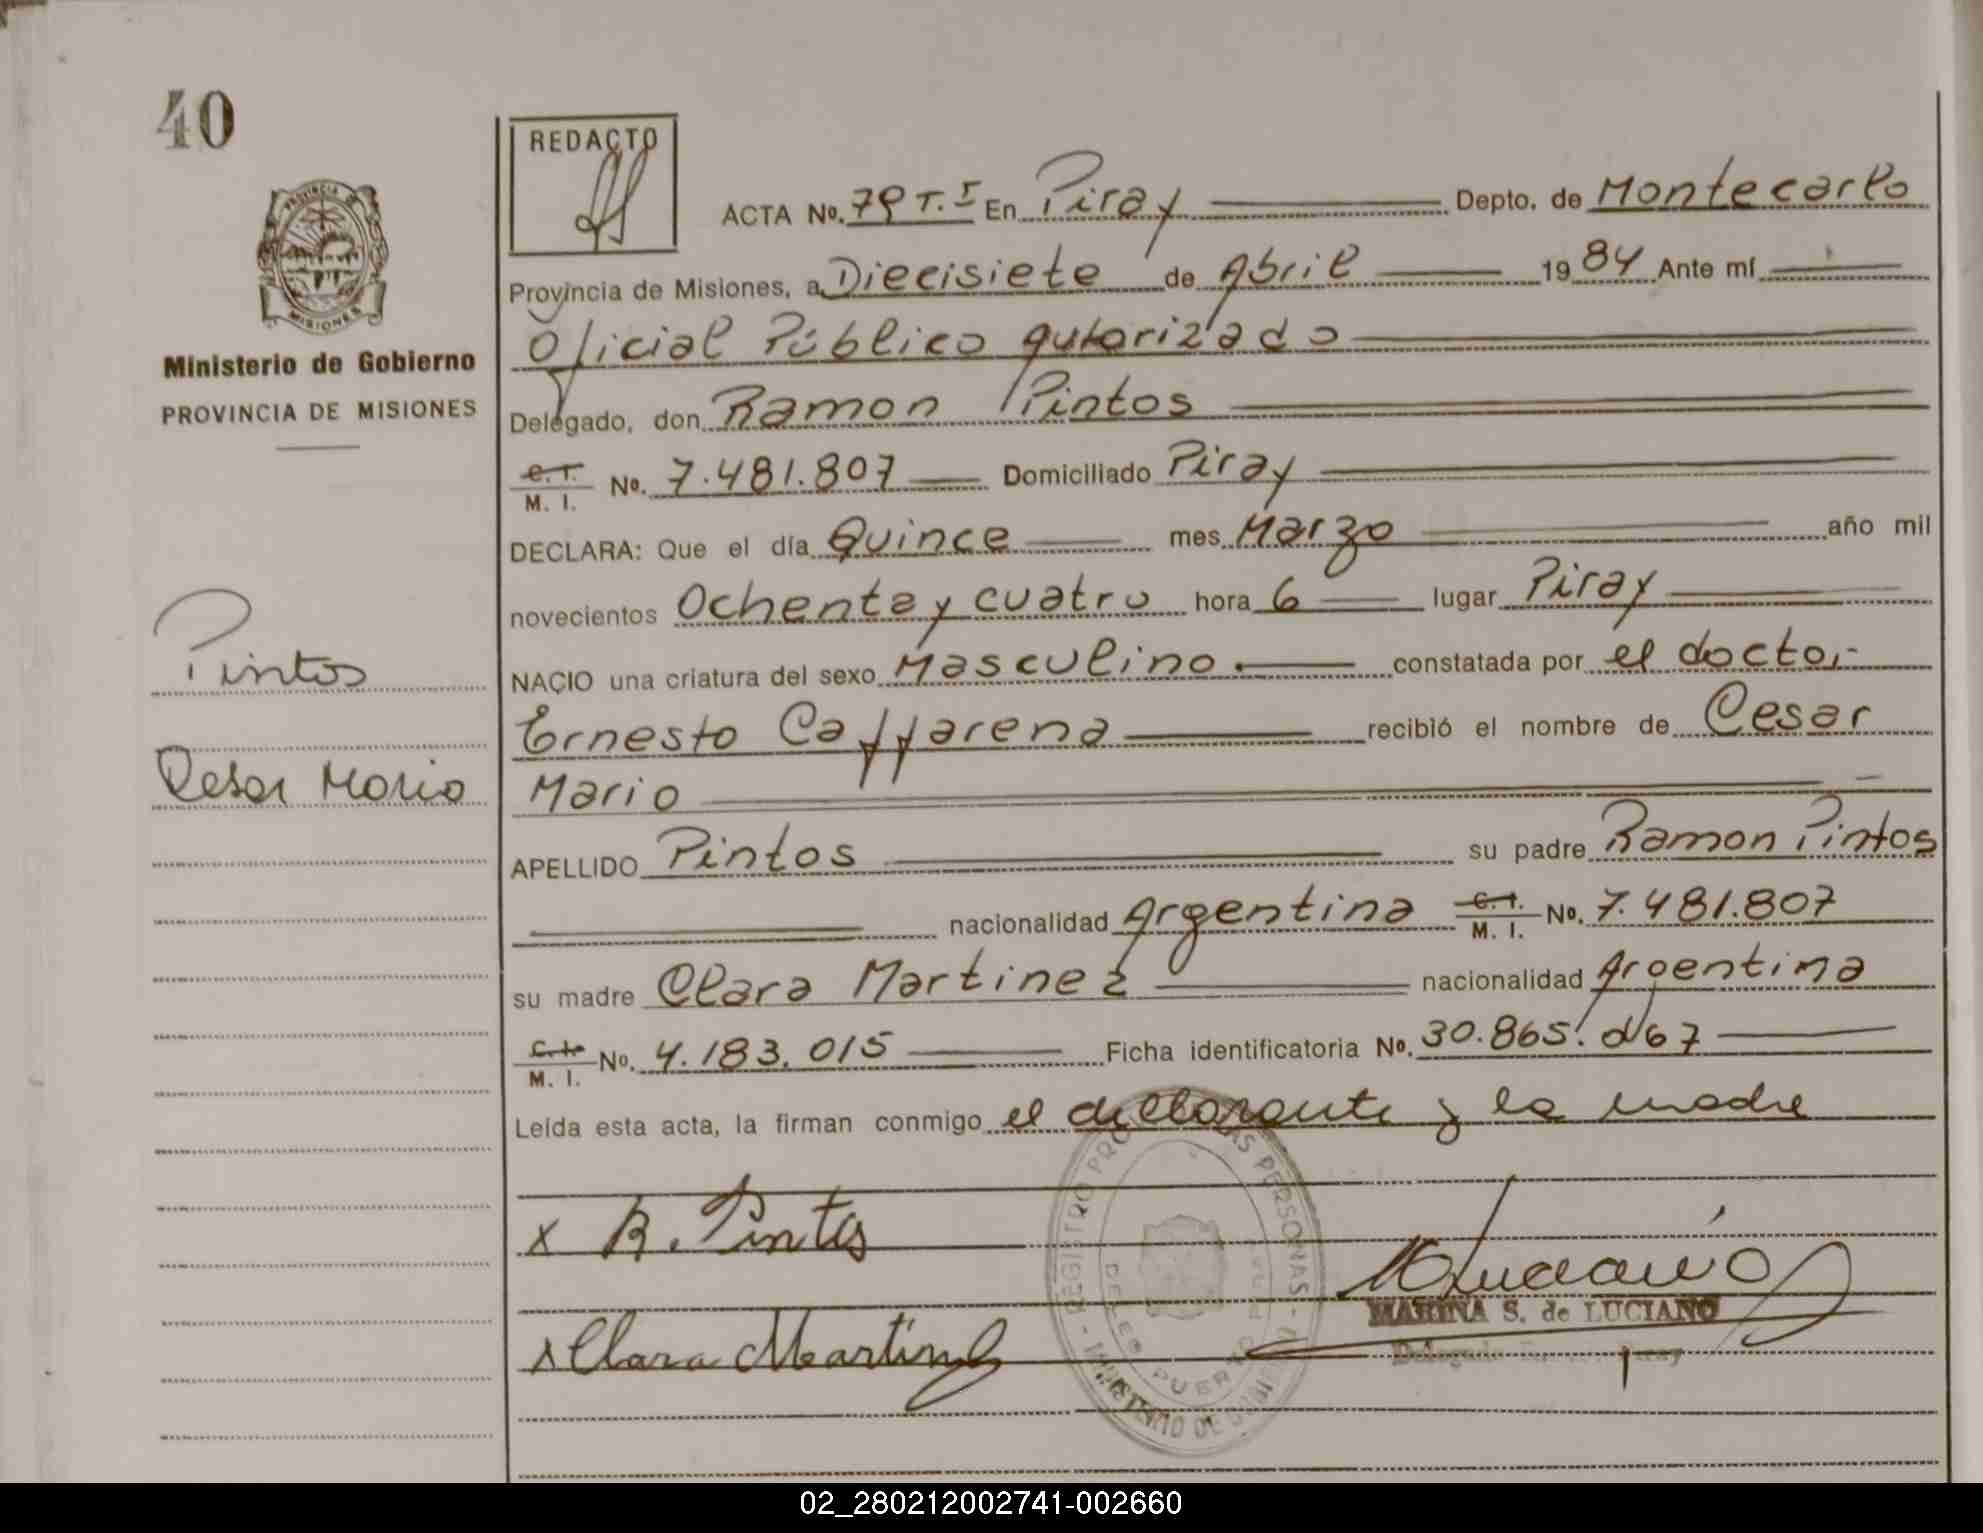 40
PROVINCIA DE
MISIONES
Ministerio de Gobierno
PROVINCIA DE MISIONES
Pintos
Cesar Mario
REDACTO
ACTA No. 79 T. I En Piray Depto. de Montecarlo
Provincia de Misiones, a Diecisiete de Abril 1984 Ante mí
Oficial Público autorizado
Delegado, don Ramon Pintos
C. I. M. I. No. 7.481.807 Domiciliado Piray
DECLARA: Que el día Quince mes Marzo año mil
novecientos Ochenta y cuatro hora 6 lugar Piray
NACIO una criatura del sexo Masculino. constatada por el doctor
Ernesto Caffarena recibió el nombre de Cesar
Mario
APELLIDO Pintos su padre Ramon Pintos
nacionalidad Argentina C. I. M. I. No. 7.481.807
su madre Clara Martinez nacionalidad Argentina
C. I. M. I. No. 4.183.015 Ficha identificatoria No. 30.865.
Leída esta acta, la firman conmigo el declarante y la madre
x R. Pintos
x Clara Martinez
REGISTRO PERSONAS - MINISTERIO DE
PUERTO
Luciano
MARINA S. de LUCIANO
02_280212002741-002660